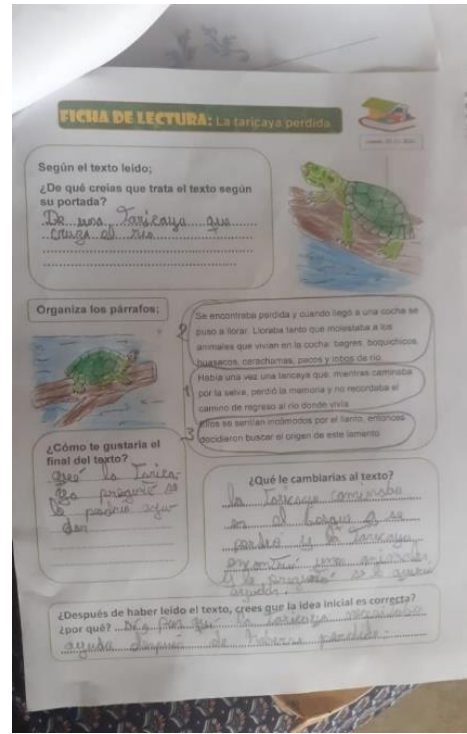 FICHA DE LECTURA: La taricaya perdida
Según el texto leído;
¿De qué creías que trata el texto según
su portada?
De una Taricaya que
cruza el rio
Organiza los párrafos;
2
Se encontraba perdida y cuando llegó a una cocha se
puso a llorar. Lloraba tanto que molestaba a los
animales que vivían en la cocha: bagres, boquichicos,
huasacos, carachamas, pacos y lobos de río.
1
Había una vez una taricaya que, mientras caminaba
por la selva, perdió la memoria y no recordaba el
camino de regreso al río donde vivía.
3
Ellos se sentían incómodos por el llanto, entonces
decidieron buscar el origen de este lamento.
¿Cómo te gustaría el
final del texto?
la Tarica
ya
la
¿Qué le cambiarías al texto?
la Taricaya caminaba
en el bosque y se
perdió y la Taricaya
y le
ayudar.
¿Después de haber leído el texto, crees que la idea inicial es correcta?
¿por qué? la taricaya
ayuda después de